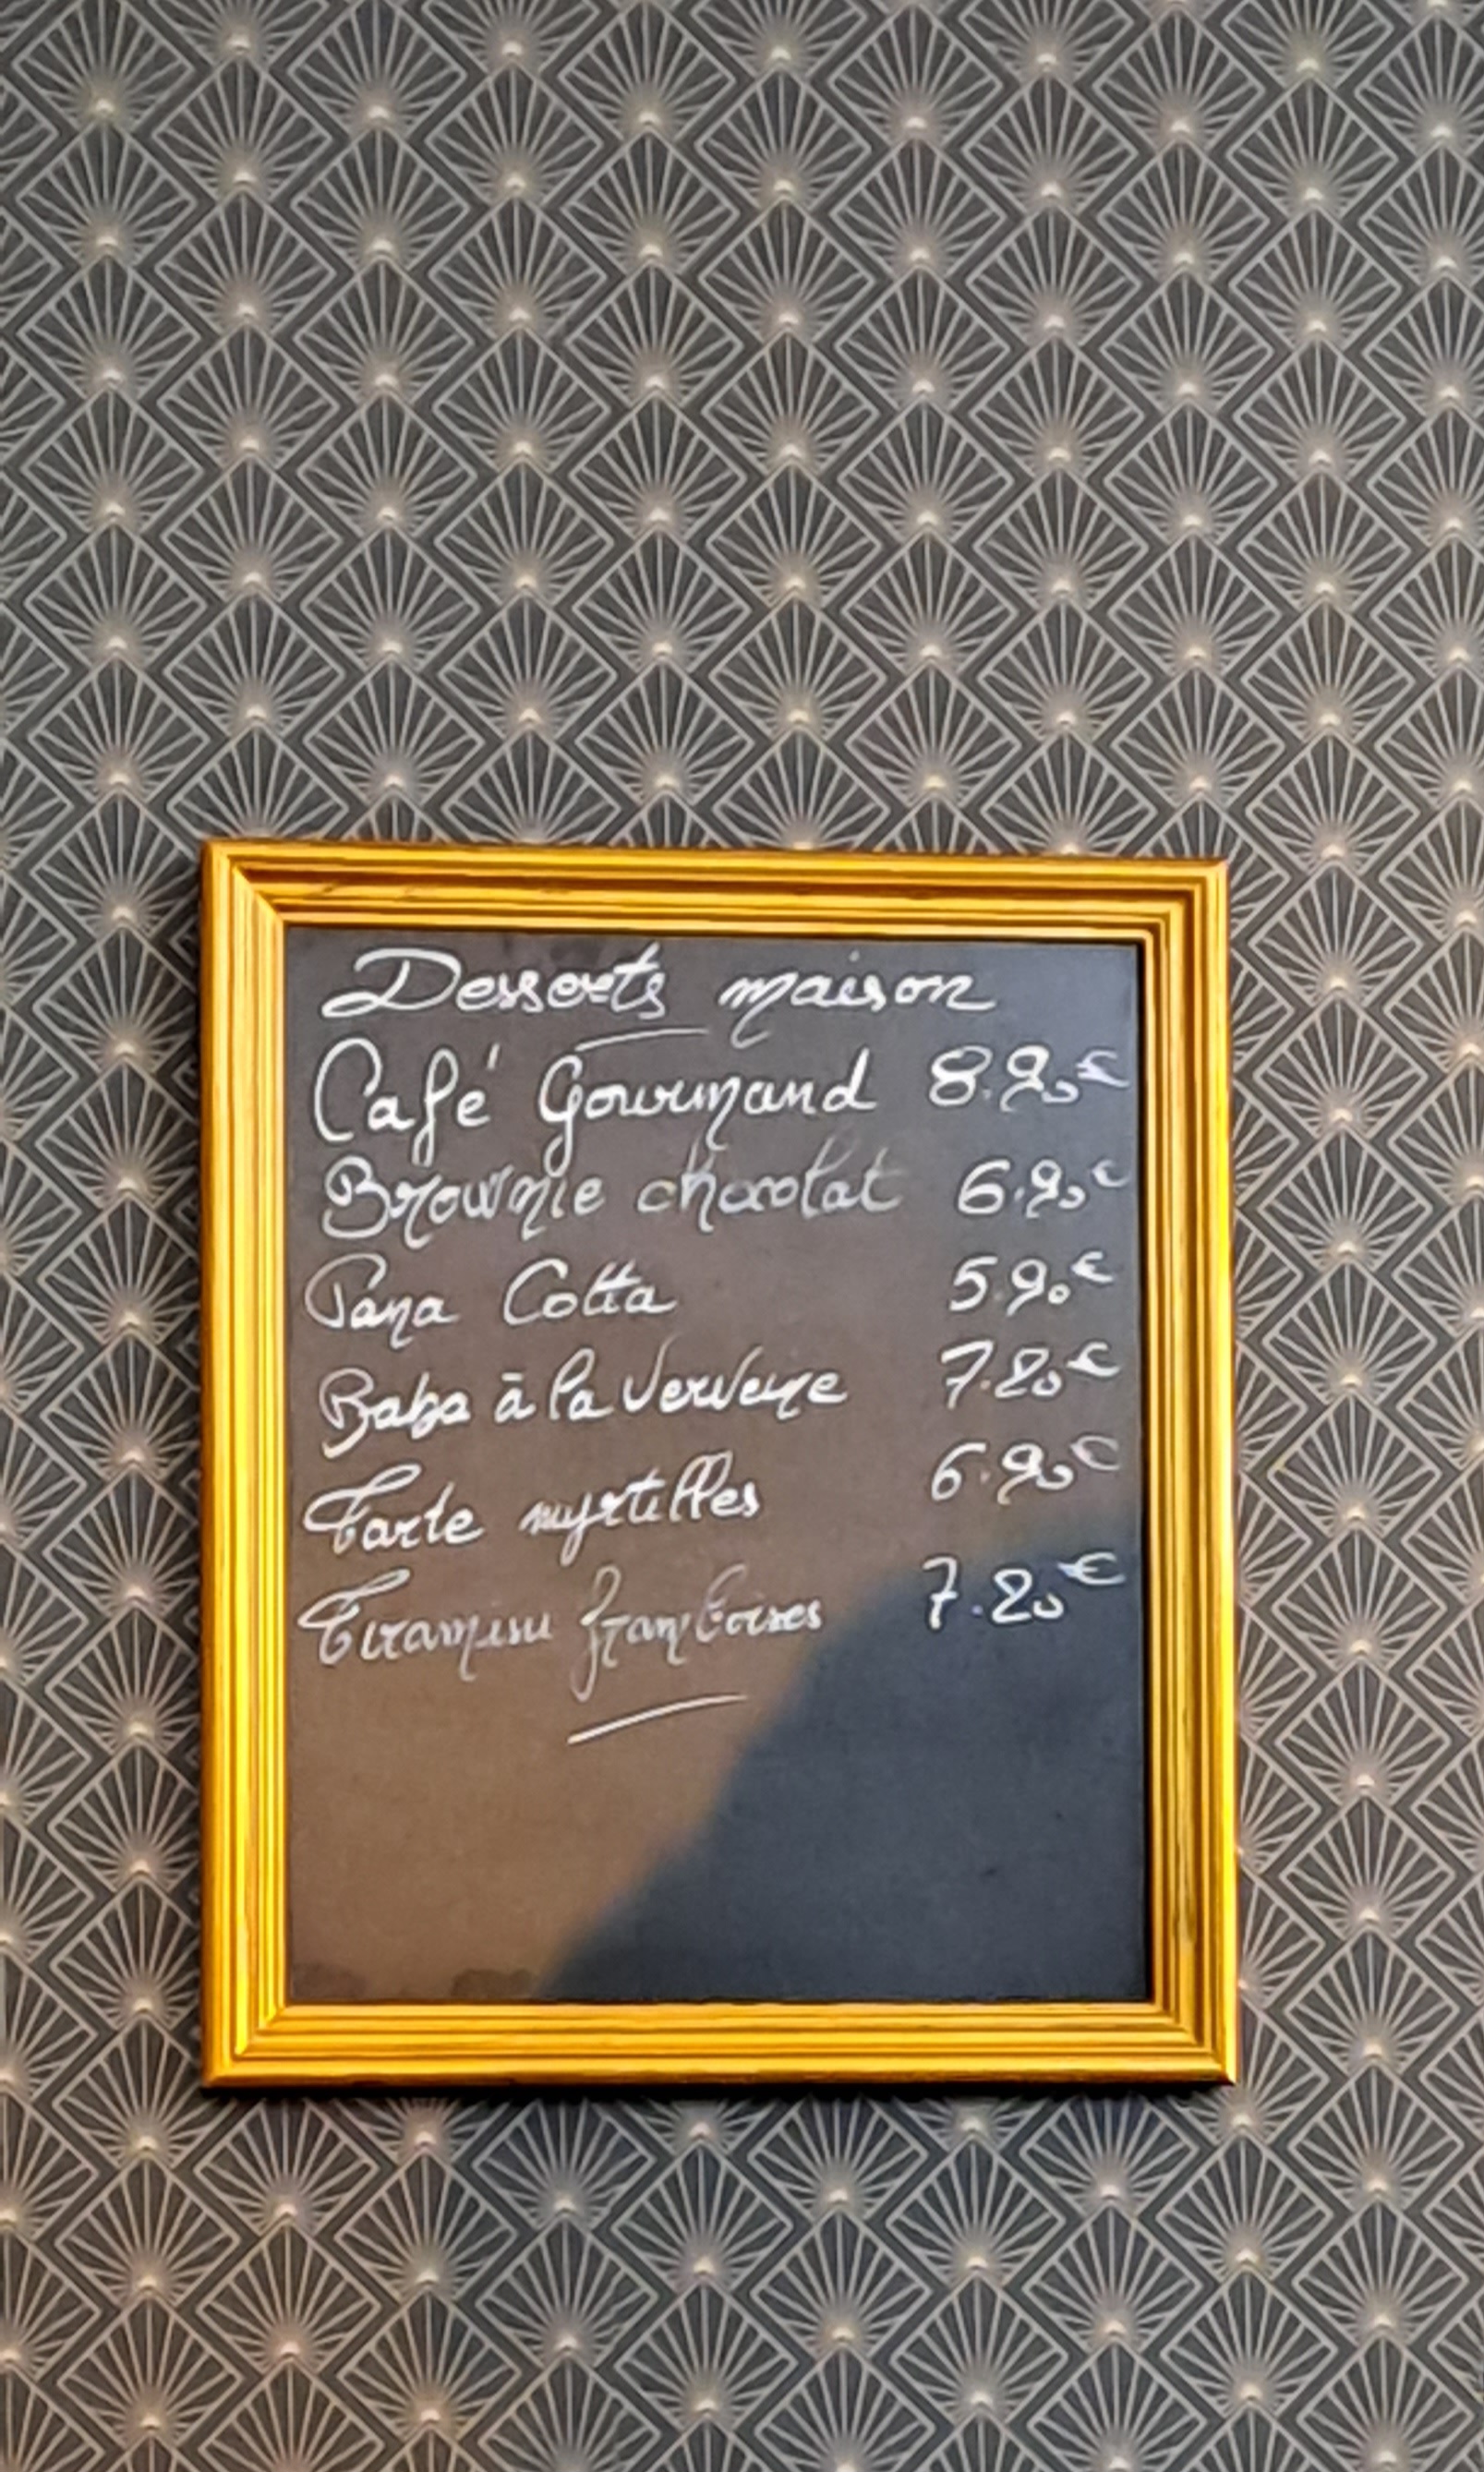 Desserts maison
Café Gourmand 8.90€
Brownie chocolat 6.90€
Pana Cotta 5.90€
Baba à la Verveine 7.20€
Tarte myrtilles 6.90€
Tiramisu framboises 7.20€